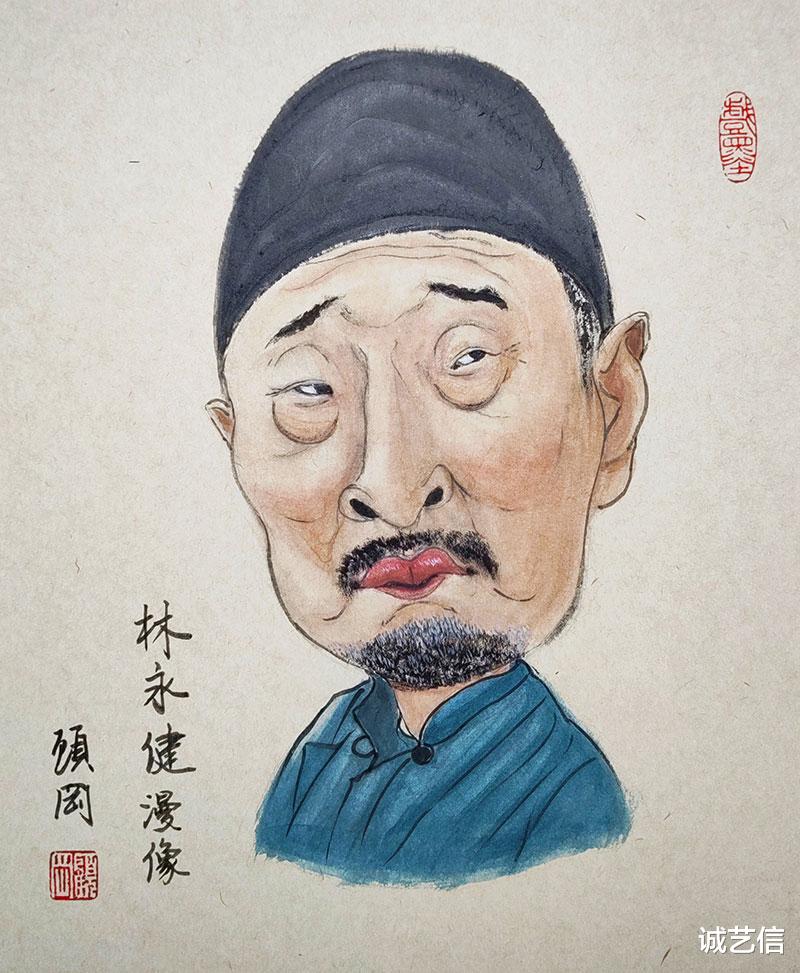 林永健漫像
岡
诚艺信